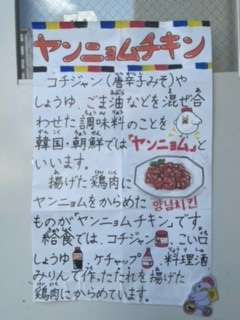 ヤンニョムチキン
コチジャン(唐辛子みそ)や
しょうゆ、ごま油などを混ぜ合
わせた調味料のことを
韓国・朝鮮では「ヤンニョム」と
いいます。
揚げた鶏肉に
ヤンニョムをからめた
양념치킨
ものが「ヤンニョムチキン」です
給食では、コチジャン、こい口
しょうゆ、ケチャップ、料理酒
みりんで作ったたれを揚げた
鶏肉にからめています。